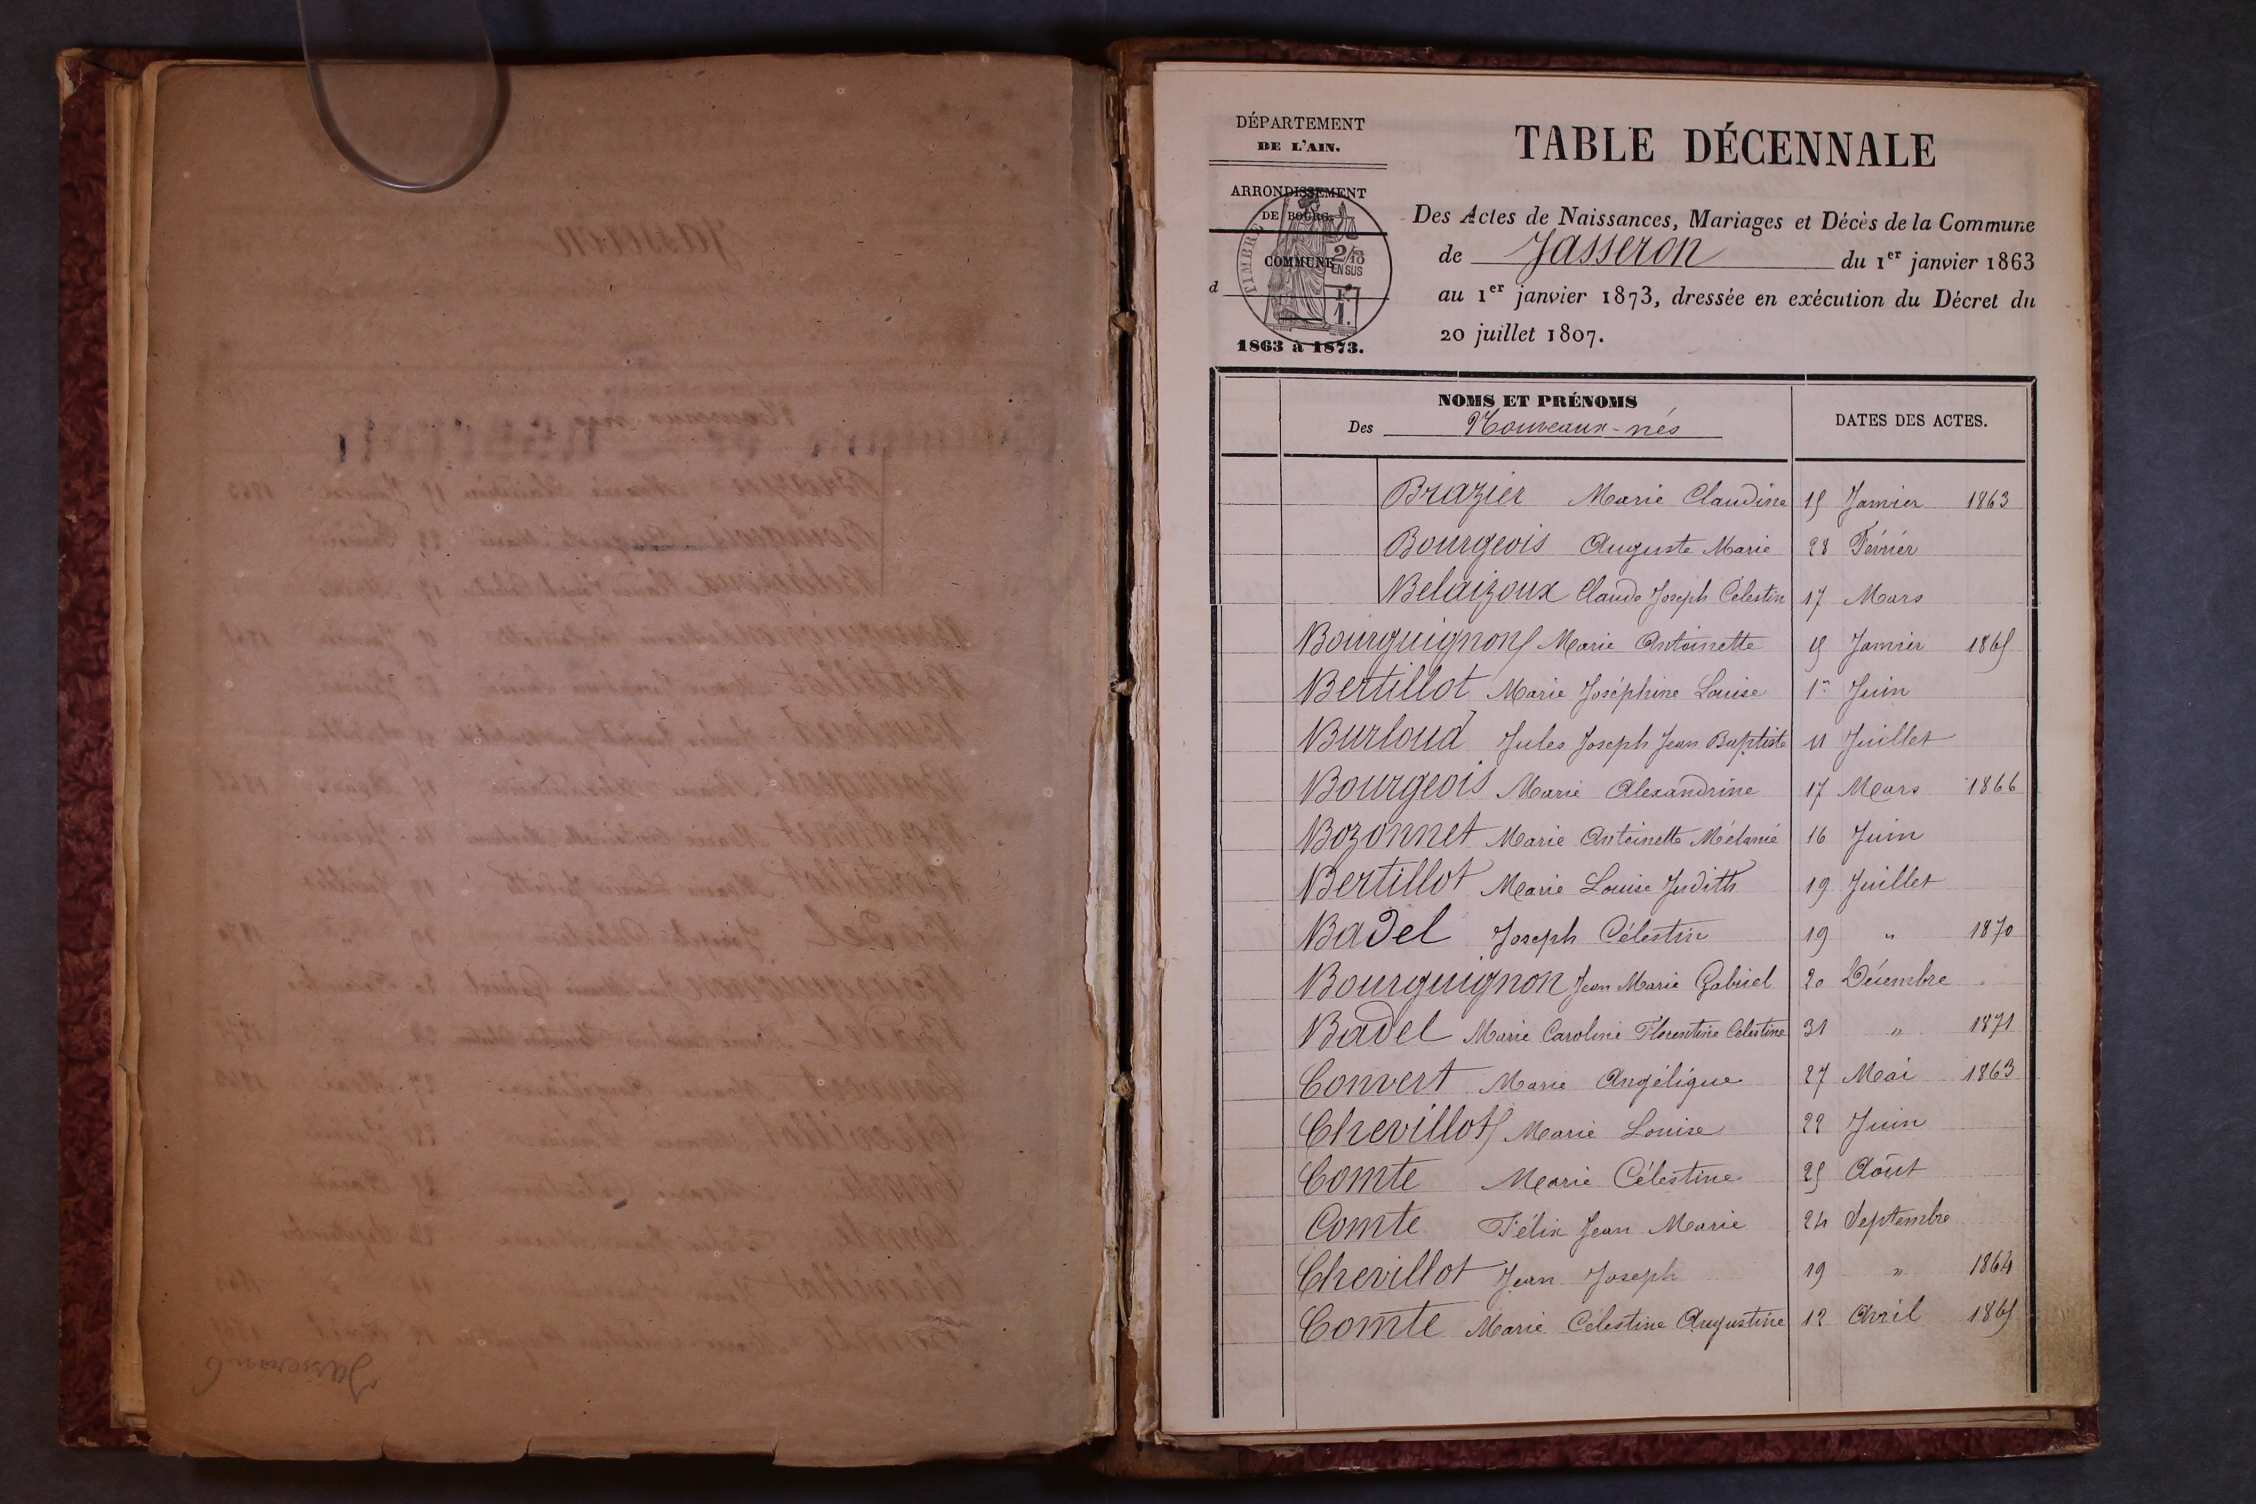 DÉPARTEMENT
DE L'AIN.
ARRONDISSEMENT
DE BOURG.
TIMBRE
2/10
EN SUS
COMMUNE
d
1F.
1863 à 1873.
TABLE DÉCENNALE
Des Actes de Naissances, Mariages et Décès de la Commune
de Jasseron du 1er janvier 1863
au 1er janvier 1873, dressée en exécution du Décret du
20 juillet 1807.
NOMS ET PRÉNOMS
Des Nouveaux-nés
DATES DES ACTES.
Brazier Marie Claudine 15 Janvier 1863
Bourgeois Auguste Marie 28 Février
Belaizoux Claude Joseph Célestin 17 Mars
Bourguignon Marie Antoinette 15 Janvier 1865
Bertillot Marie Joséphine Louise 1er Juin
Burloud Jules Joseph Jean Baptiste 11 Juillet
Bourgeois Marie Alexandrine 17 Mars 1866
Bozonnet Marie Antoinette Mélanie 16 Juin
Bertillot Marie Louise Judith 19 Juillet
Badel Joseph Célestin 19 " 1870
Bourguignon Jean Marie Gabriel 20 Décembre
Badel Marie Caroline Florentine Célestine 31 " 1871
Convert Marie Angélique 27 Mai 1863
Chevillot Marie Louise 22 Juin
Comte Marie Célestine 25 Août
Comte Félix Jean Marie 24 Septembre
Chevillot Jean Joseph 19 " 1864
Comte Marie Célestine Augustine 12 Avril 1865